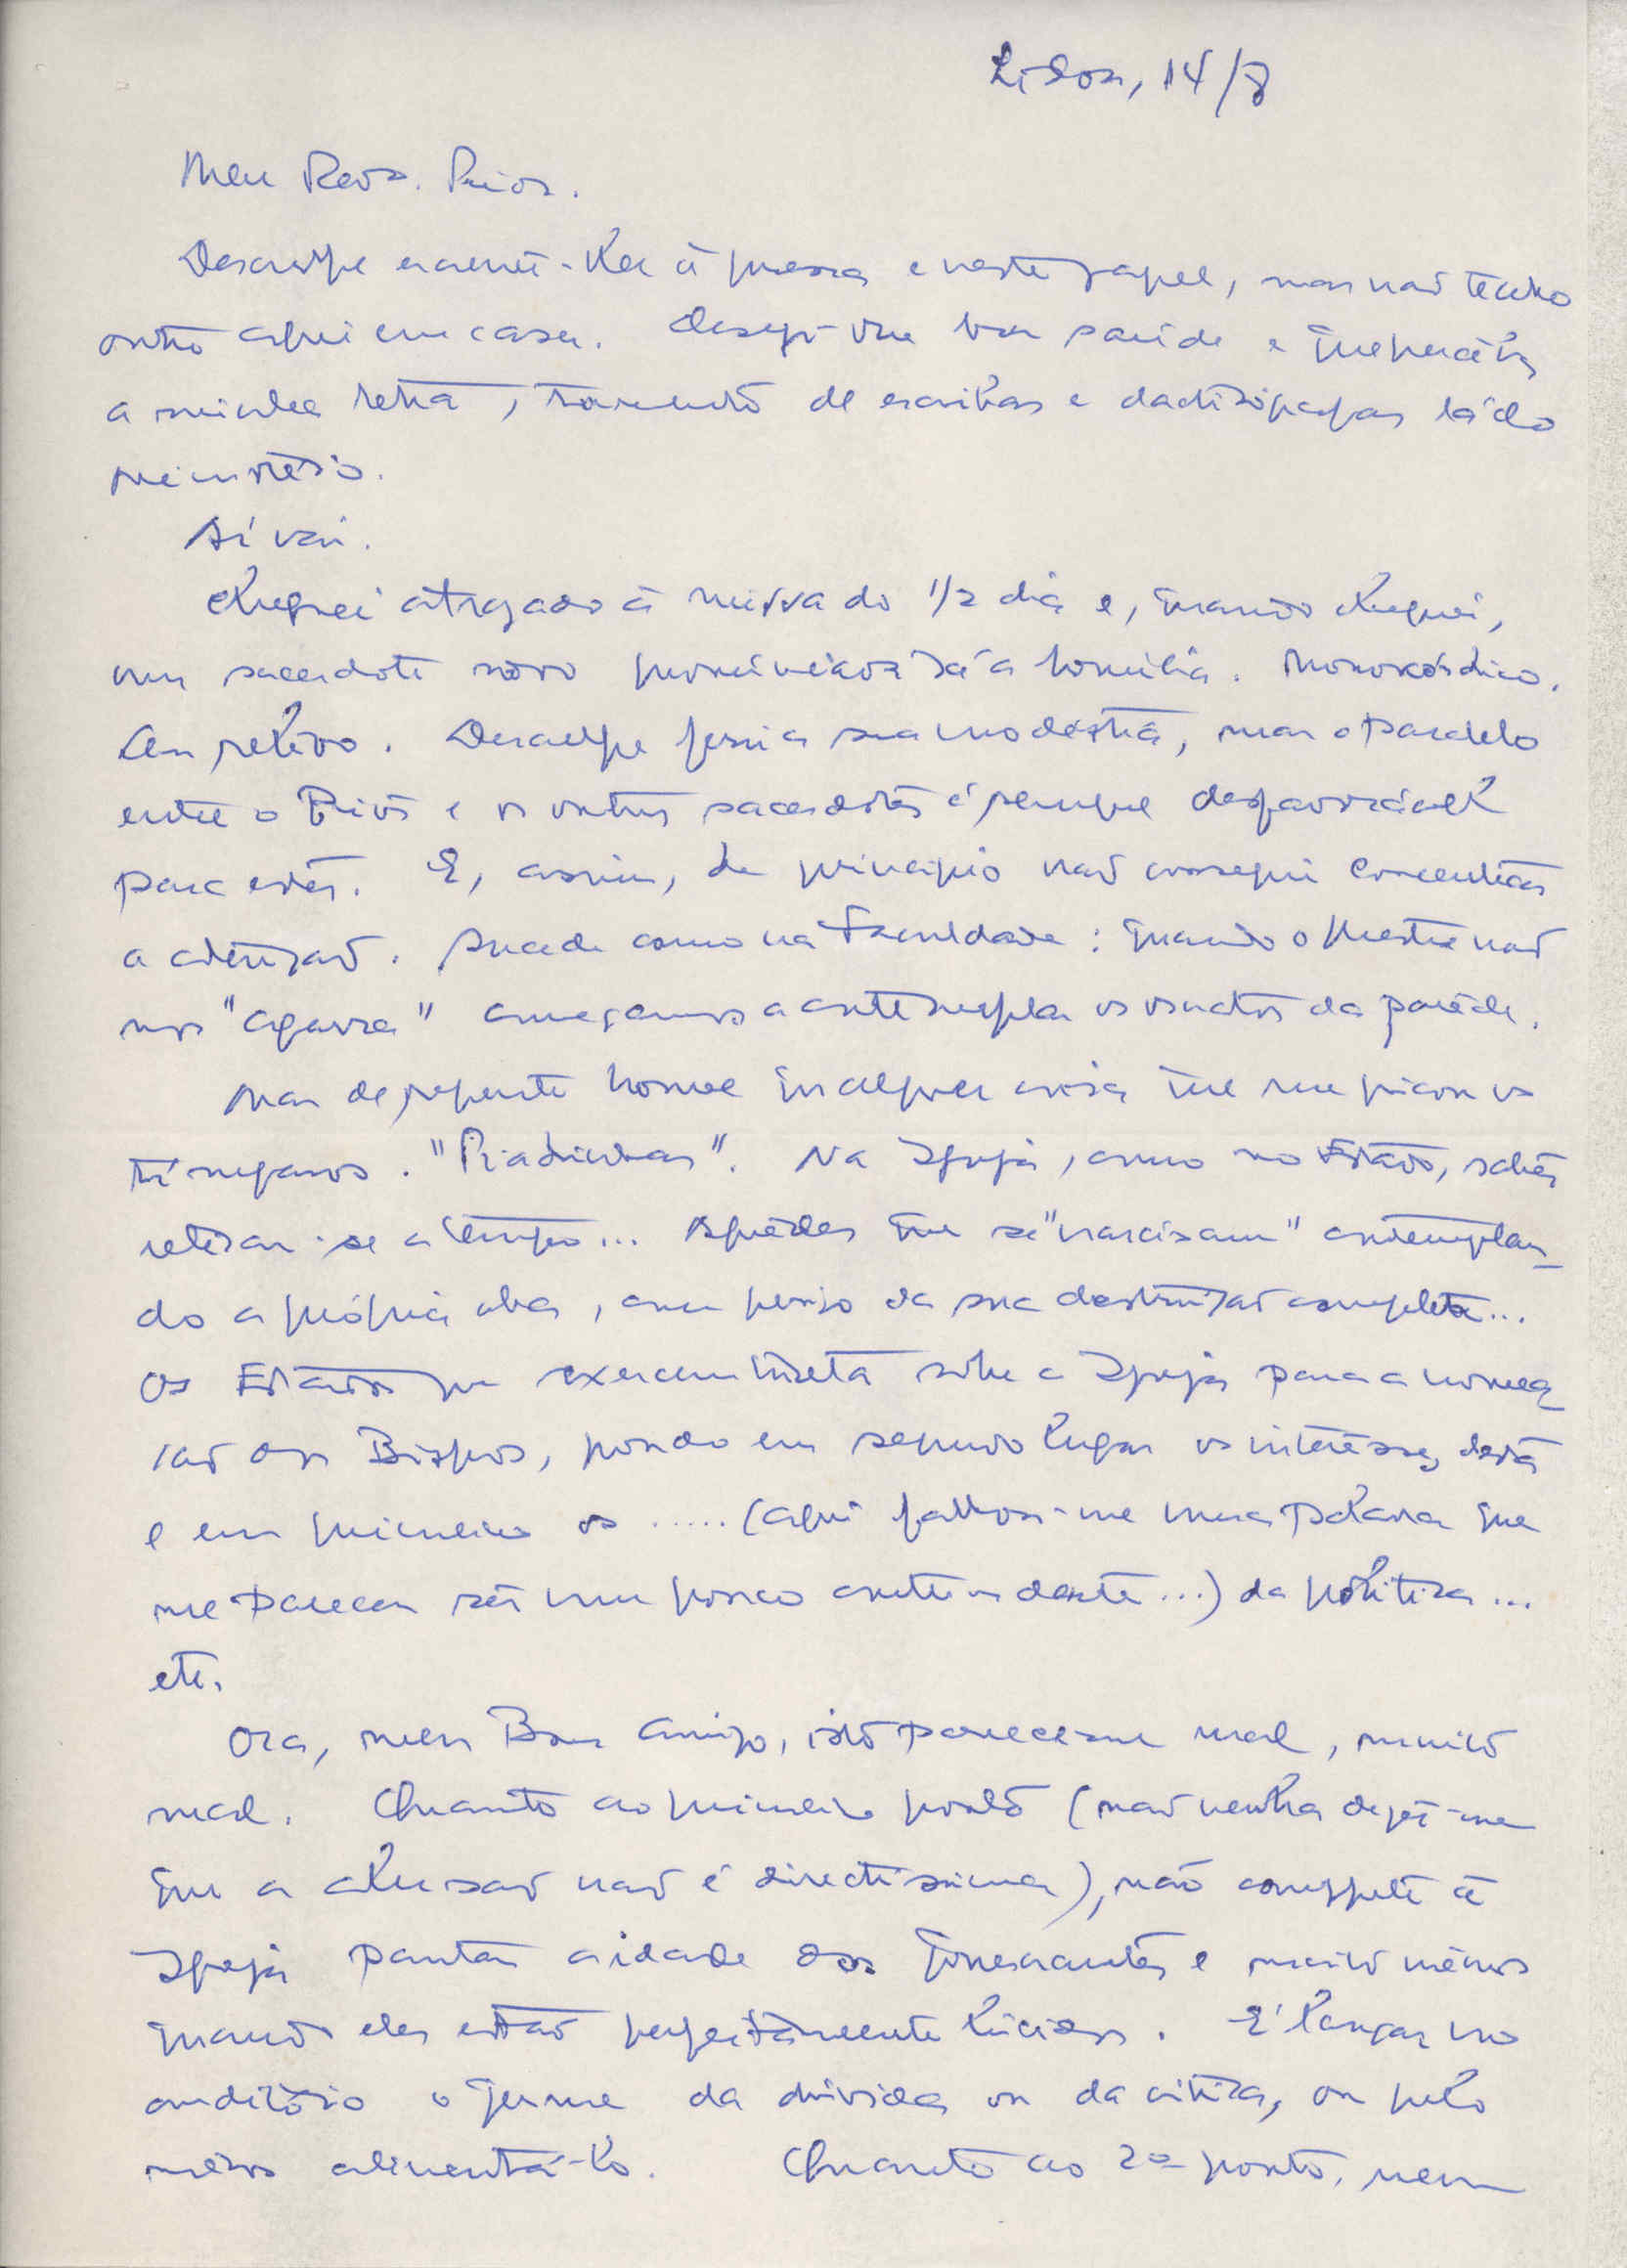 Lisboa, 14/8
Meu Revo. Prior.
Desculpe escrever-lhe à pressa e neste papel, mas não tenho
outro aqui em casa. Desejo-lhe boa saúde e que perceba
a minha letra, de escribas e dactilógrafas lá do
ministério.
Aí vai.
Cheguei atrazado à missa do 1/2 dia e, quando cheguei,
um sacerdote novo pronunciava já a homilia. Monocórdico.
Sem relevo. Desculpe ferir a sua modéstia, mas o paralelo
entre o Prior e os outros sacerdotes é sempre desfavorável
para estes. E, assim, de princípio não consegui concentrar
a atenção. Sucede como na Faculdade: quando o Mestre não
nos "agarra" começamos a contemplar os da parede.
Mas de repente houve qualquer coisa que me picou os
tímpanos. "Piadinhas". Na Igreja, como no Estado, saber
retirar-se a tempo... Aqueles que se "narcisam" contemplan_
do a própria obra, com perigo da sua destruição completa...
Os Estados que exercem sobre a Igreja para a nomea
ção dos Bispos, pondo em segundo lugar os interesses desta
e em primeiro os ..... (aqui falhou-me uma palavra que
me pareceu ser um pouco contundente...) da política...
etc.
Ora, meu Bom Amigo, isto parece-me mal, muito
mal. Quanto ao primeiro ponto (não venha dizer-me
que a alusão não é directíssima), não compete à
Igreja pautar a idade dos governantes e muito menos
quando eles estão perfeitamente lúcidos. É lançar no
auditório o germe da dúvida ou da crítica, ou pelo
menos alimentá-lo. Quanto ao 2º ponto, nem